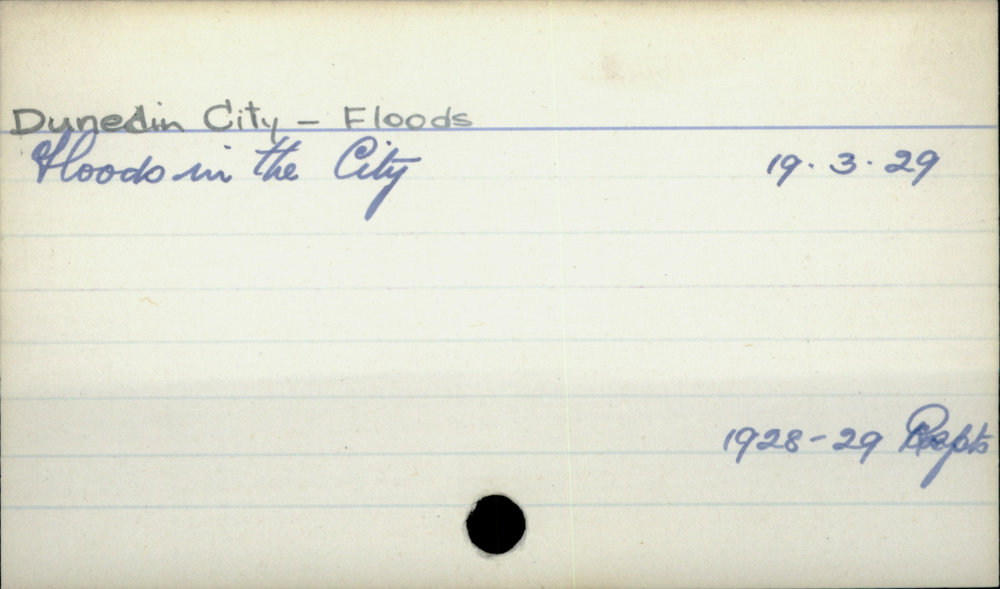 Dunedin City - Floods
Floods in the City 19. 3. 29
1928-29 Repts